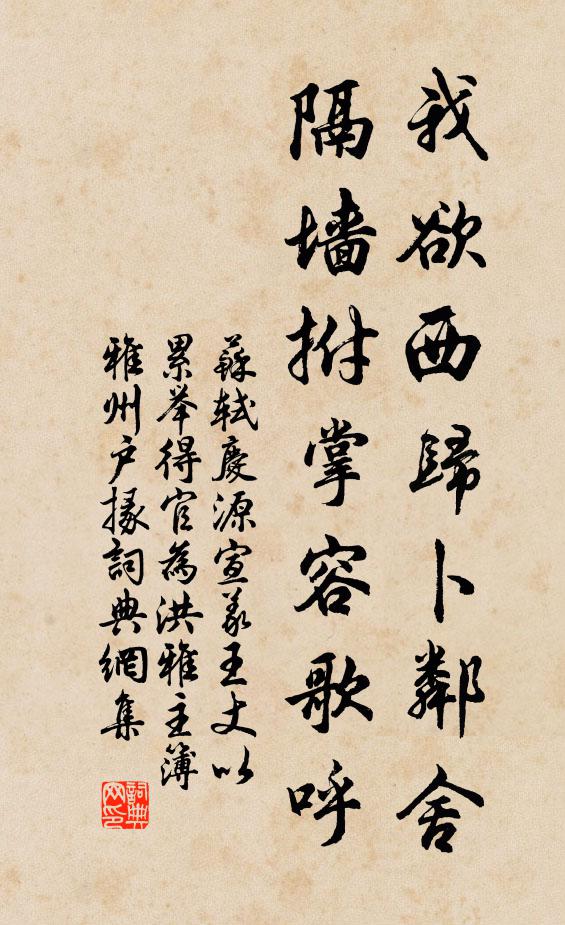 我欲西歸卜鄰舍
隔墙拊掌容歌呼
蘇軾慶源宣義王丈以
累举得官為洪雅主簿
雅州户掾詞典網集
詞典
网印